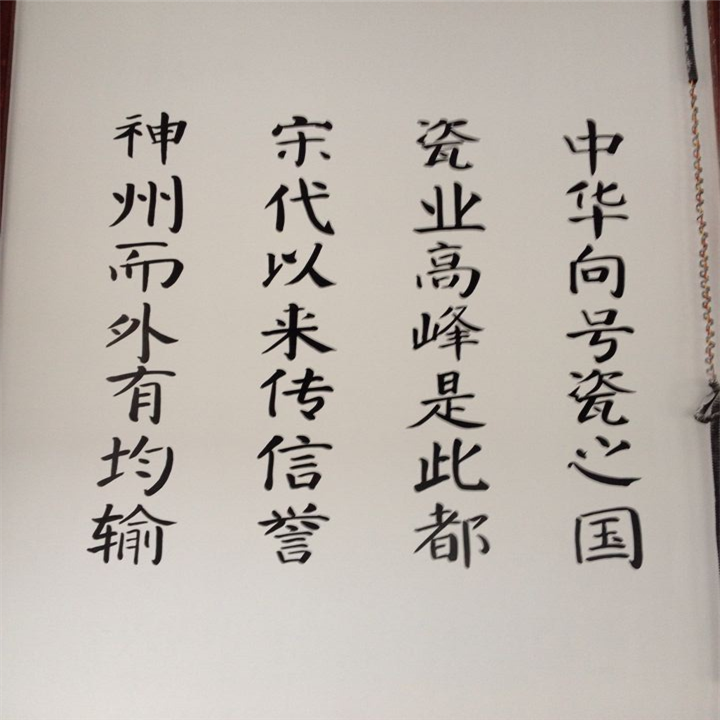 中华向号瓷之国
瓷业高峰是此都
宋代以来传信誉
神州而外有均输